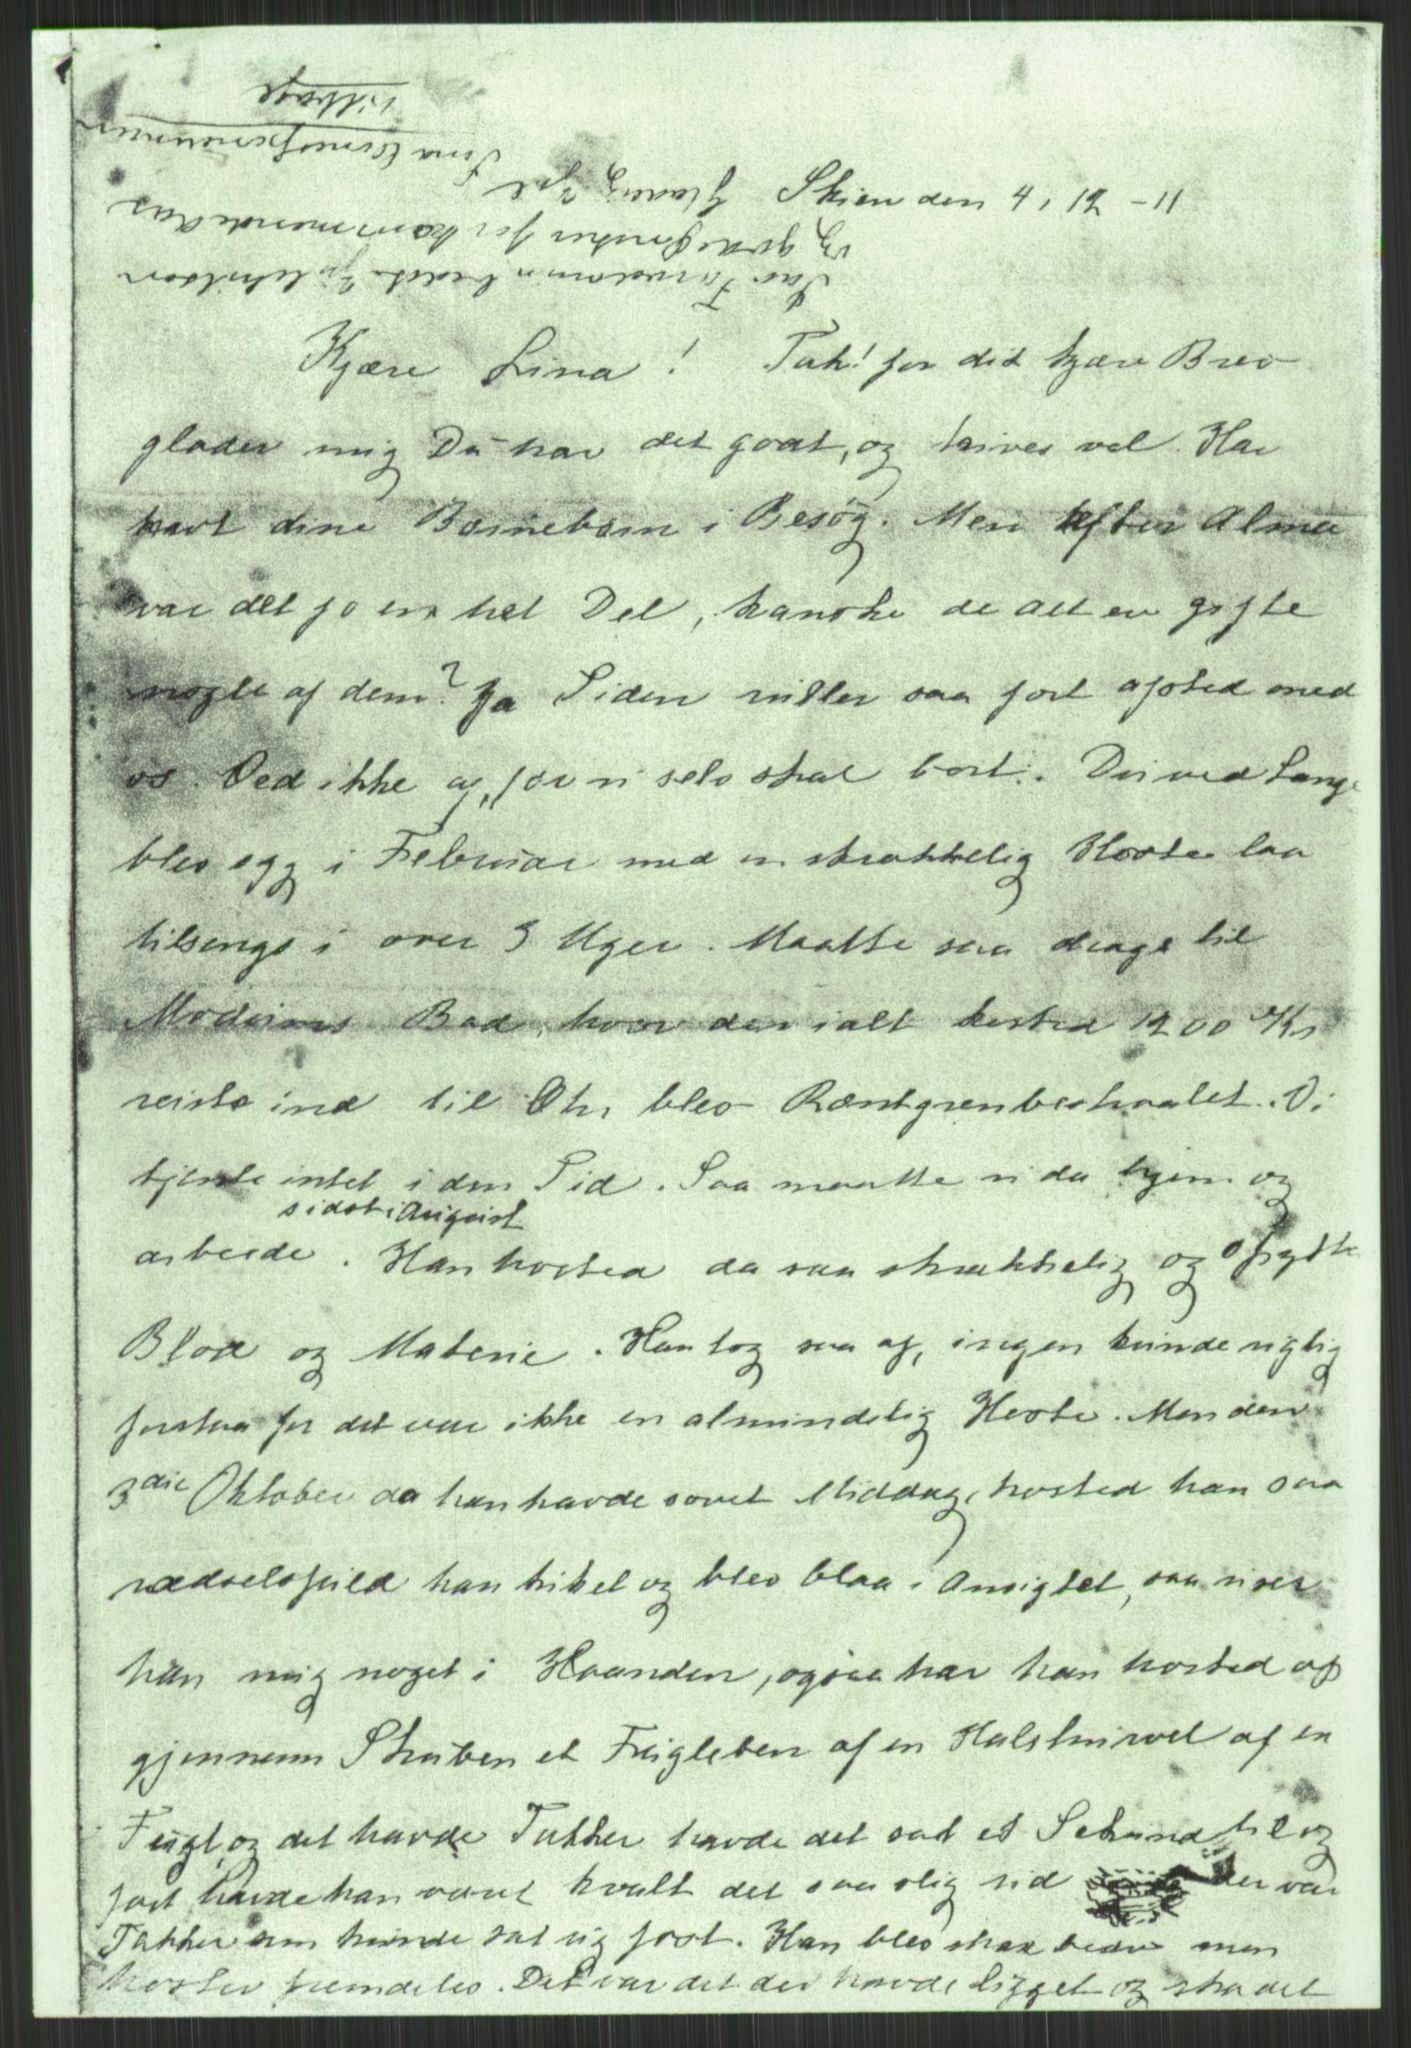 Skien den 4, 12 - 11
Kjære Lina! Tak! for dit kjære Brev
glæder mig Du har det godt, og trives vel. Har
havt dine Barnebarn i Besøg. Men efter Alma
var det jo en hel Del, kanske de alt er gifte
nogle af dem? Ja Tiden iiller saa fort afsted med
os. Ved ikke af, før vi selv skal bort.
blev syg i Februar med en skrækkelig Hoste laa
tilsengs i over 3 Uger. Maatte saa drage til
Modums Bad, hvor der ialt kosted 1200 Kr
reiste ind til Chr, blev Røentgrenbestraalet. Vi
tjente intet i den Tid. Saa maatte vi da hjem og
sidst i August
arbeide. Han hosted da saa skrækkelig og spytte
Blod og Materie. Han tog saa af, ingen kunde rigtig
forstaa for det var ikke en almindelig Hoste. Men den
3die Oktober da han havde sovet Middag, hosted han saa
rædselsfuld han hikst og blev blaa i Ansigtet, saa viser
han mig noget i Haanden, ogsaa har han hosted op
gjennem Struben et Fugleben af en Halshvirvel af en
Fugl, og det havde Takker havde det sat et Sekund til og
fast havde han været kvalt det saa slig ud der var
Takker som kunde sat sig fast. Han blev strax bedre men
hoster fremdeles. Det var det der havde ligget og skadet
Lav
og gode Ønsker for kommende Aar
glædelig Jul
tilbage